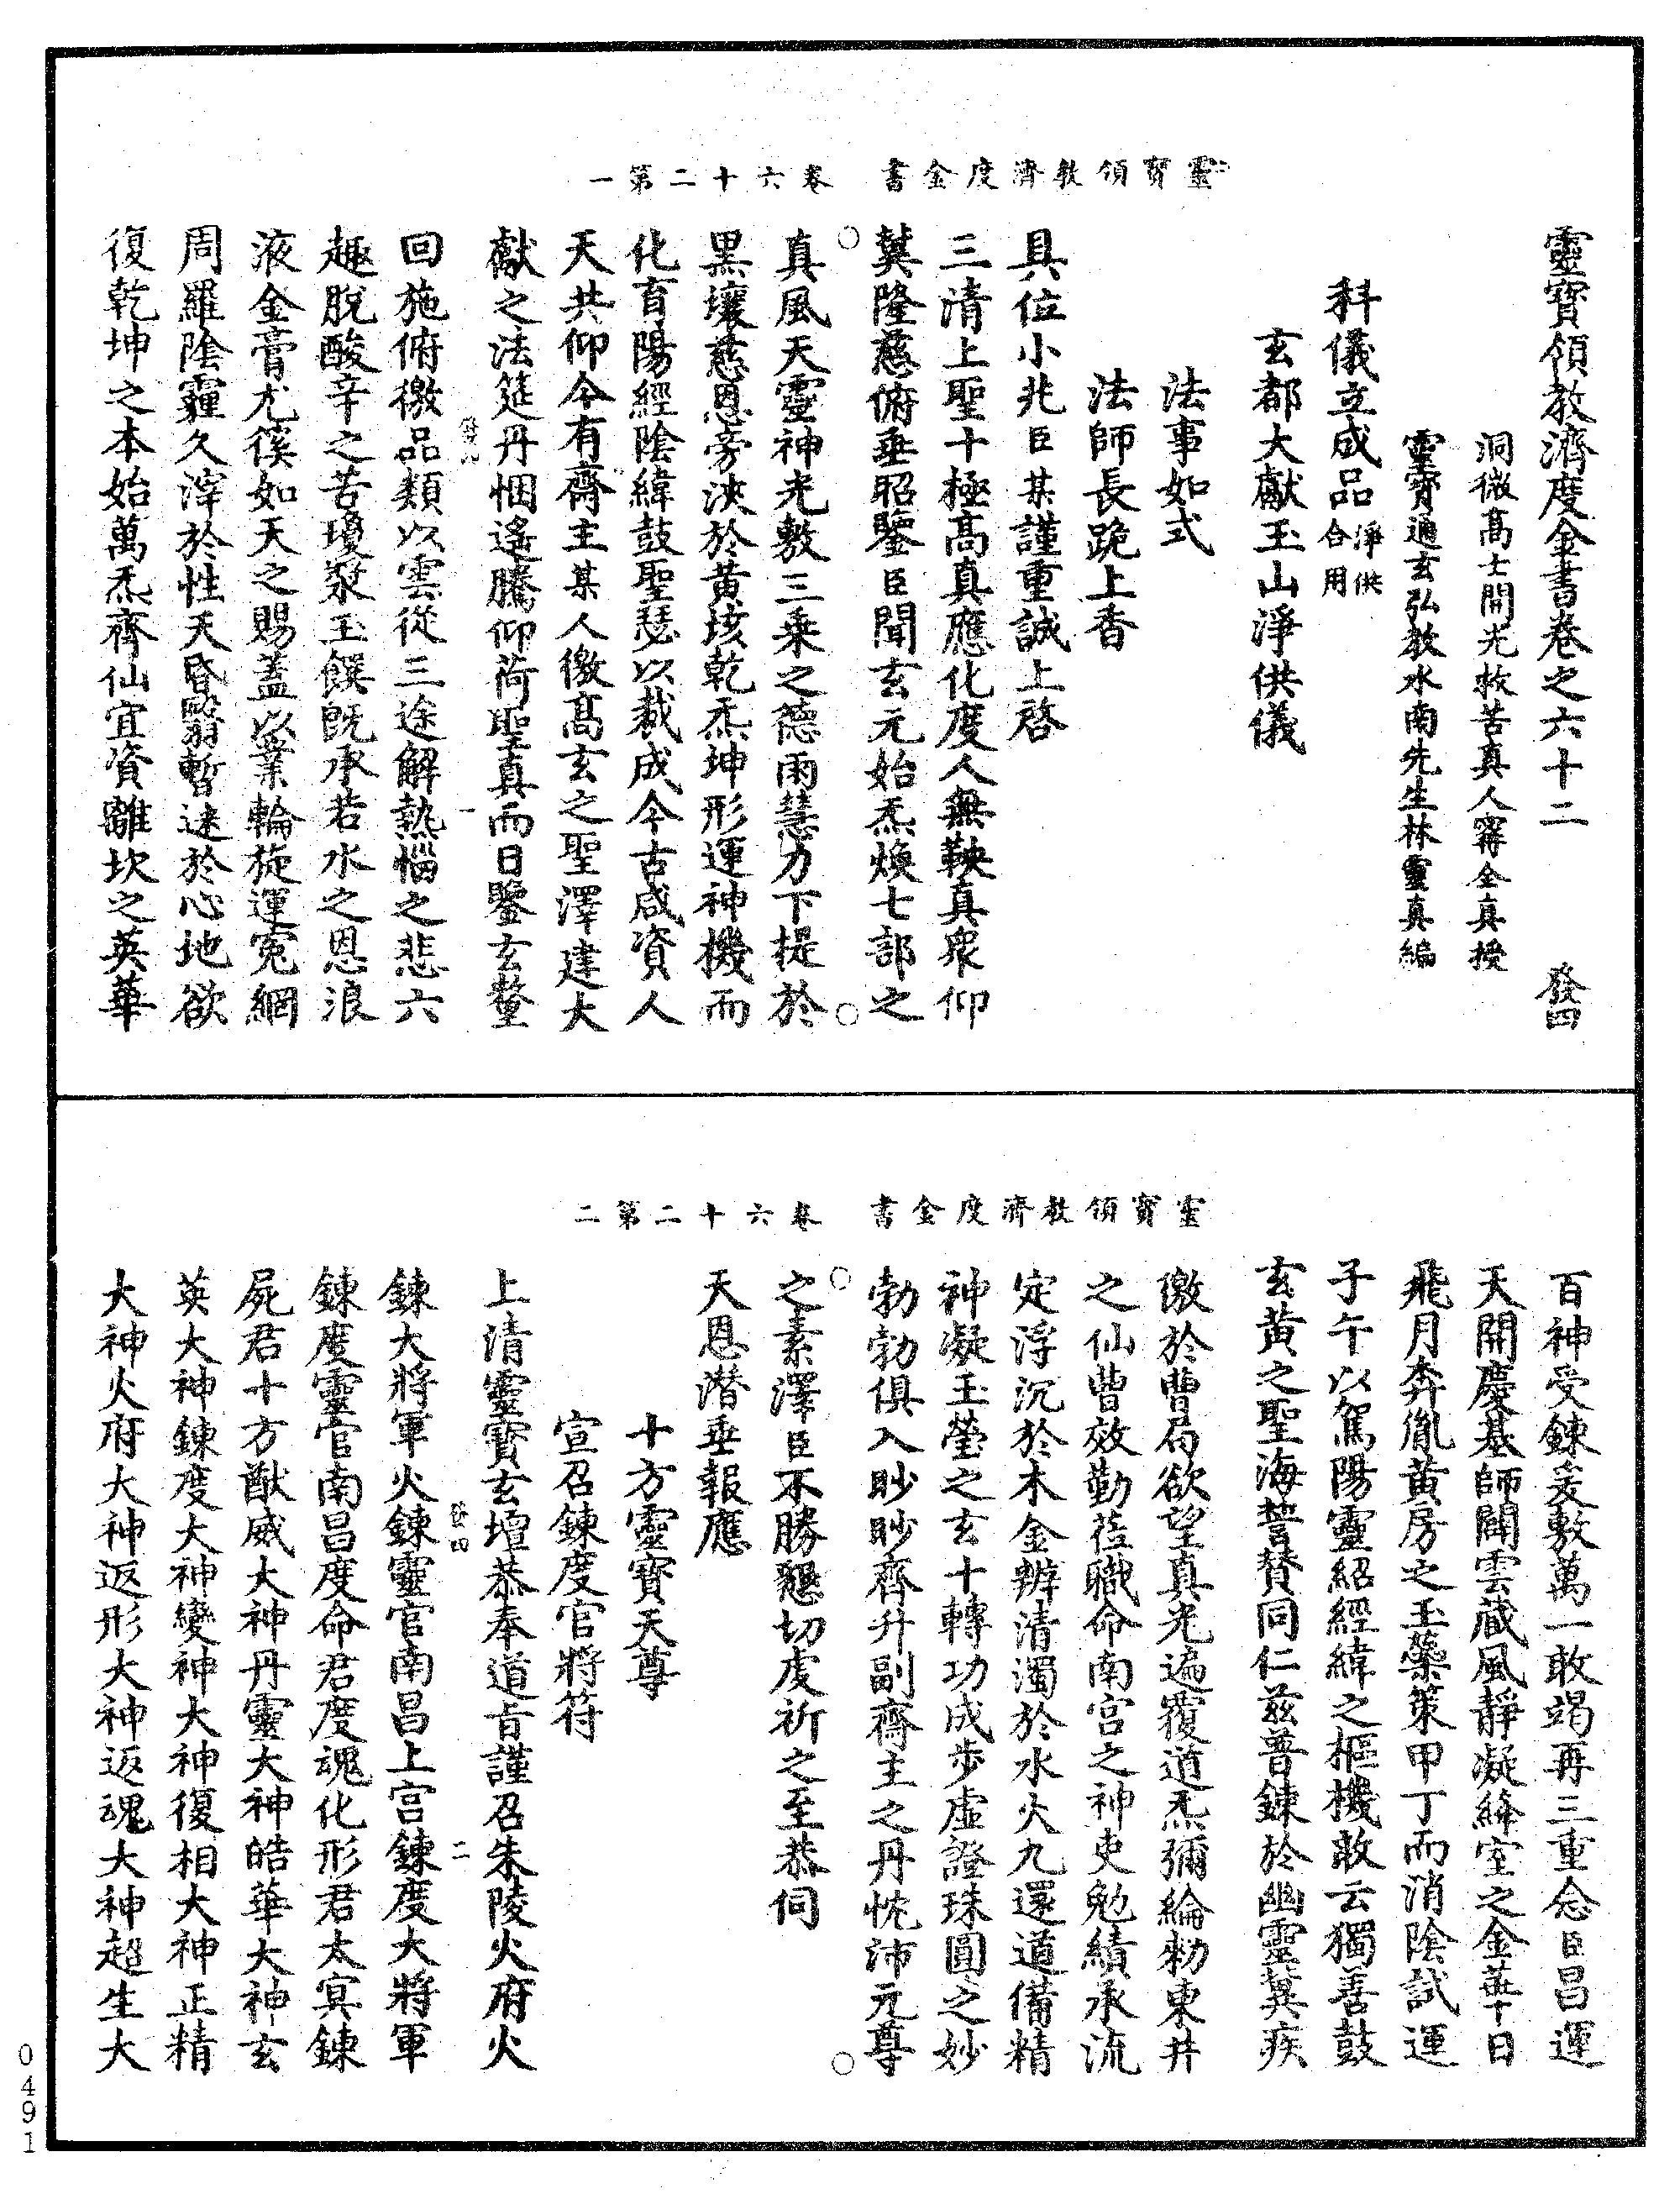 靈寶領教濟度金書卷之六十二　發四
洞微高士開光救苦真人甯全真授
靈寶通玄弘教水南先生林靈真編
科儀立成品淨供合用
玄都大獻玉山淨供儀
法事如式
法師長跪上香
具位小兆臣某謹重誠上啓
三清上聖十極高真應化度人無鞅真衆仰
冀隆慈俯垂昭鑒臣聞玄元始炁煥七部之
真風天靈神光敷三乘之德雨慧力下提於
黑壤慈恩旁浹於黃垓乾炁坤形運神機而
化育陽經陰緯鼓聖瑟以裁成今古咸資人
天共仰今有齋主某人徼高玄之聖澤建大
獻之法筵丹悃遙騰仰荷聖真而日鑒玄鼇
回施俯徼品類以雲從三途解熱惱之悲六
趣脫酸辛之苦瓊漿玉饌既承若水之恩浪
液金膏尤徯如天之賜蓋以業輪旋運冤網
周羅陰霾久滓於性天昏翳暫迷於心地欲
復乾坤之本始萬炁齊仙宜資離坎之英華
靈寶領教濟度金書　卷六十二第一
百神受鍊爰敷萬一敢竭再三重念臣昌運
天開慶基師闢雲藏風靜凝絳室之金華十日
飛月奔胤黃房之玉藥策甲丁而消陰試運
子午以駕陽靈紹經緯之樞機敢云獨善鼓
玄黃之聖海誓贊同仁茲普鍊於幽靈冀疾
徼於曹局欲望真光遍覆道炁彌綸勑東井
之仙曹效勤莅職命南宮之神吏勉績承流
定浮沉於木金辨清濁於水火九還道備精
神凝玉瑩之玄十轉功成步虛證珠圓之妙
勃勃俱入眇眇齊升副齋主之丹忱沛元尊
之素澤臣不勝懇切虔祈之至恭伺
天恩潛垂報應
十方靈寶天尊
宣召鍊度官將符
上清靈寶玄壇恭奉道旨謹召朱陵火府火
鍊大將軍火鍊靈官南昌上宮鍊度大將軍
鍊度靈官南昌度命君度魂化形君太冥鍊
屍君十方猷威大神丹靈大神皓華大神玄
英大神鍊度大神變神大神復相大神正精
大神火府大神返形大神返魂大神超生大
靈寶領教濟度金書　卷六十二第二
發四　二
0491